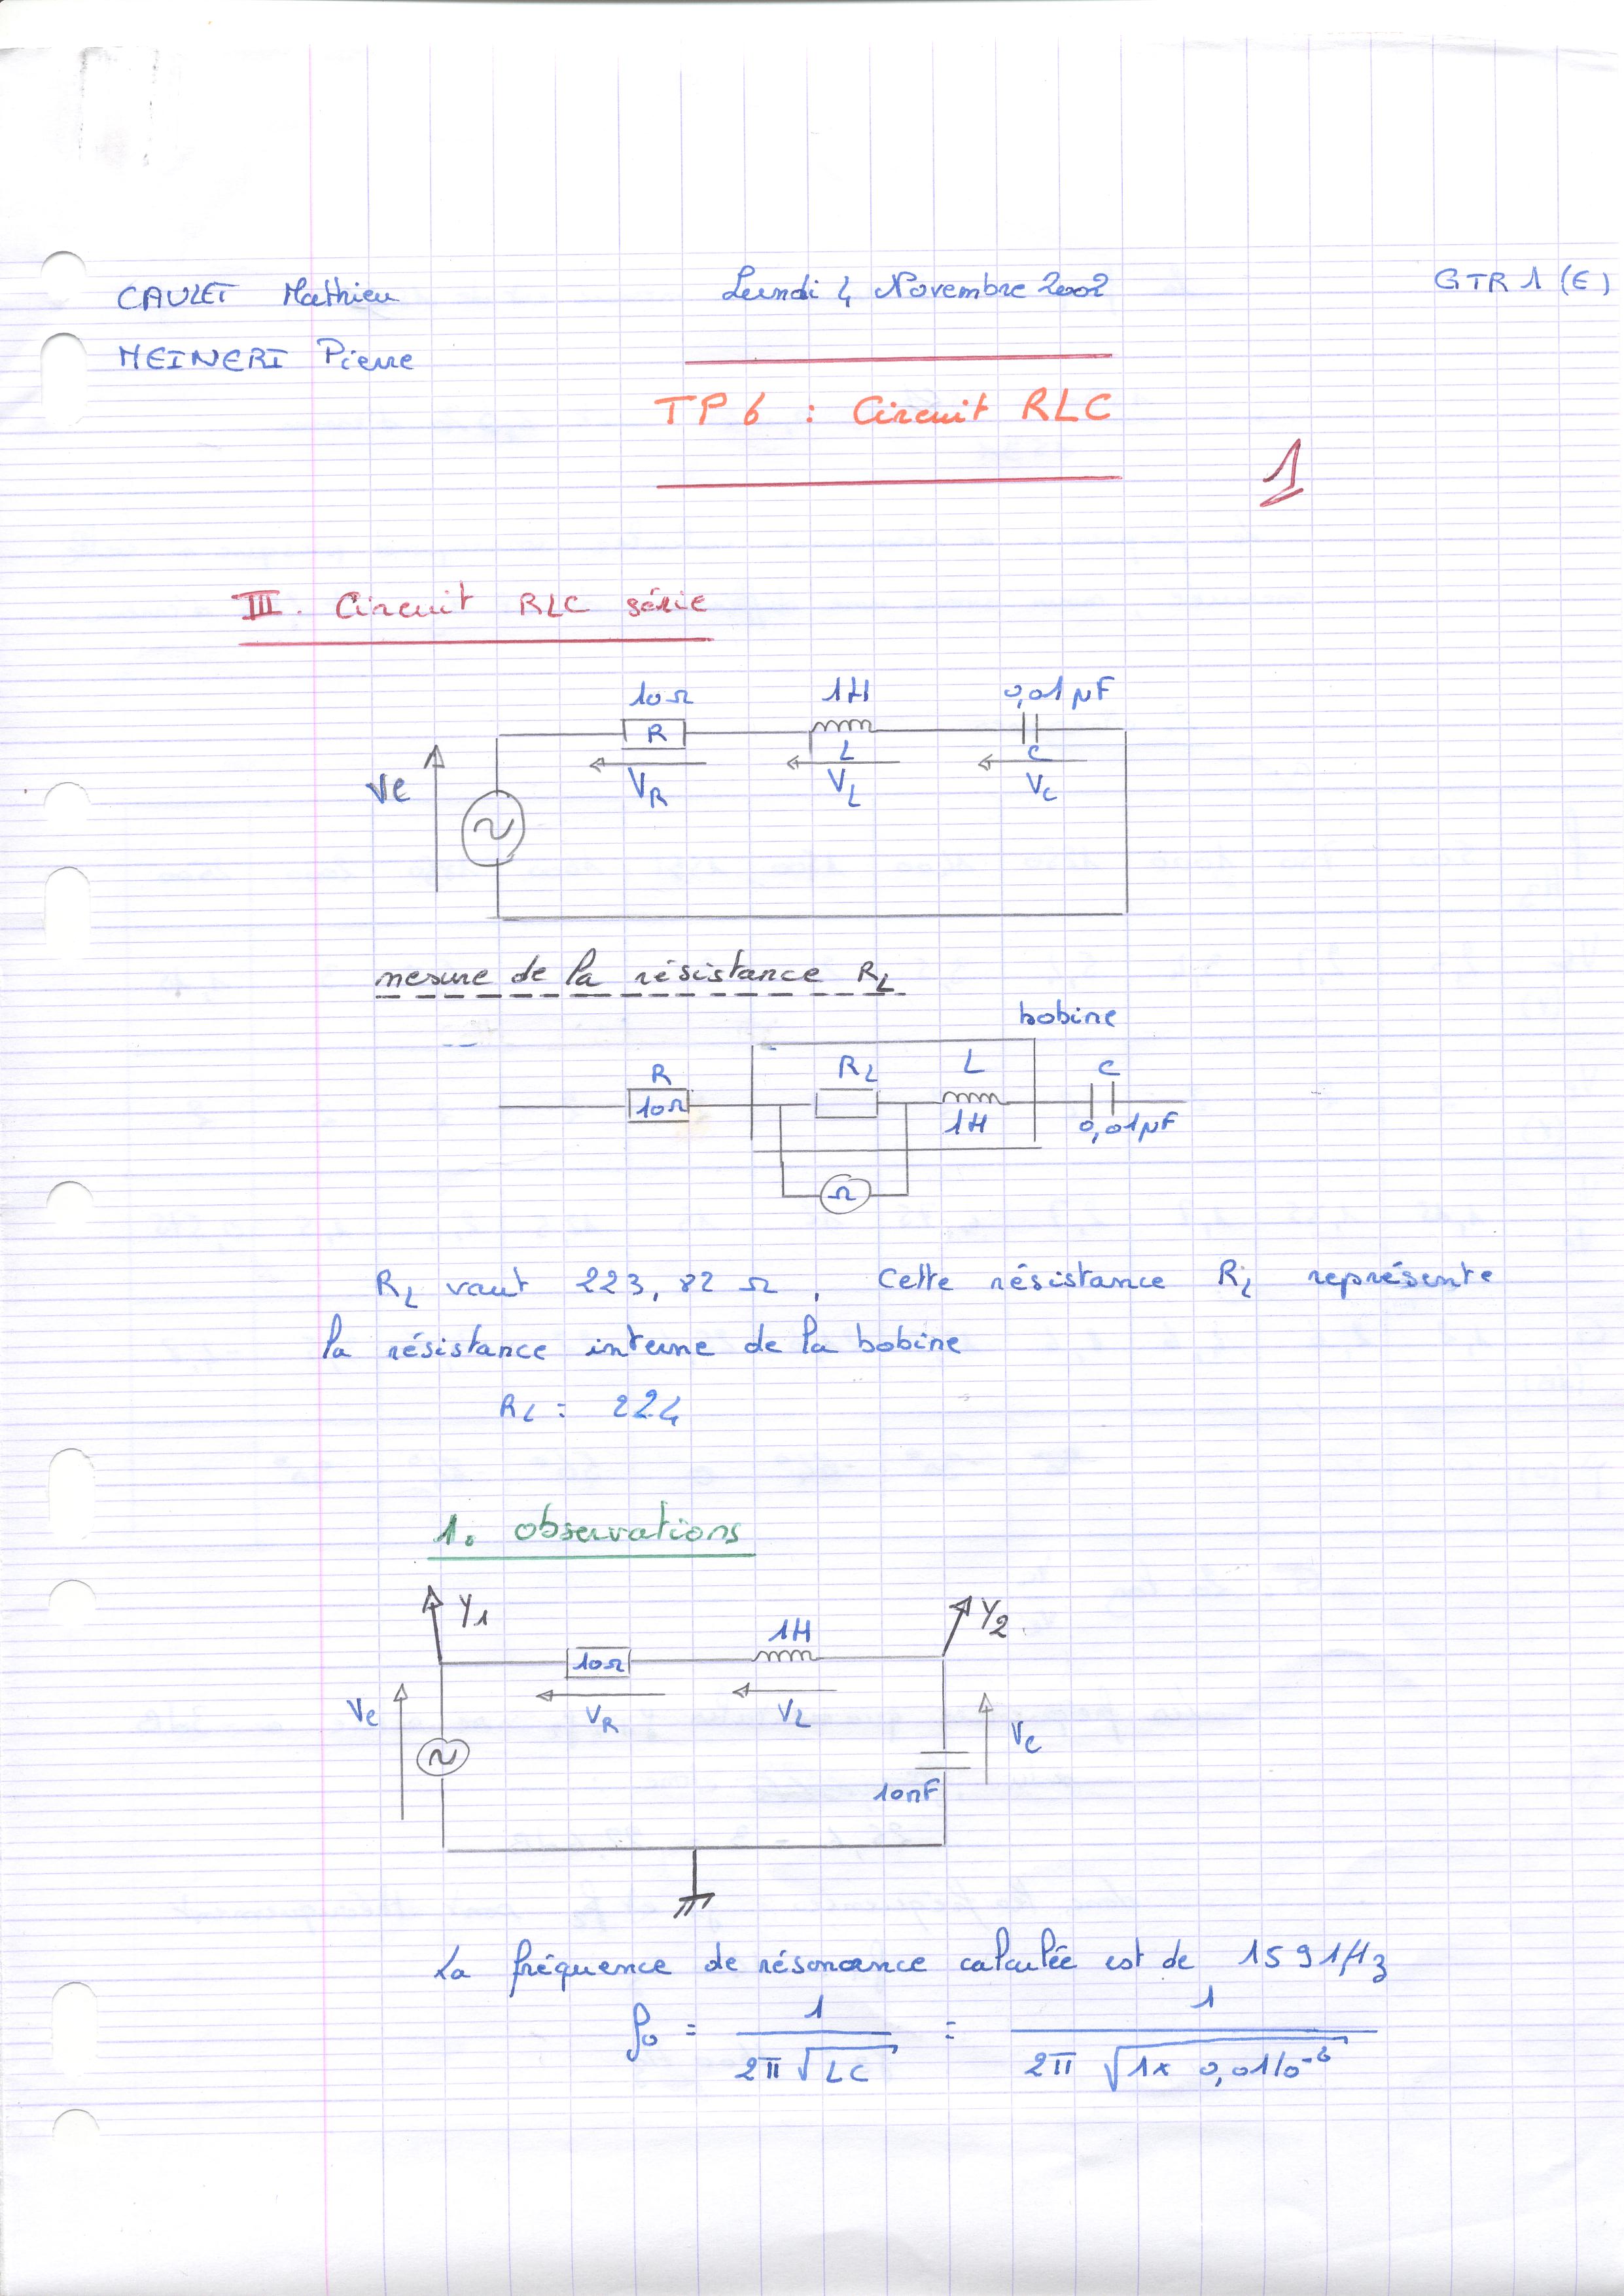 CAULET Mathieu
Lundi 4 Novembre 2002
GTR 1 (E)
MEINERI Pierre
TP 6 : Circuit RLC
1
III. Circuit RLC série
10Ω 1H 0,01 µF
R L C
Ve VR VL VC
mesure de la résistance RL
bobine
R RL L C
10Ω 1H 0,01µF
Ω
RL vaut 223,82 Ω, Cette résistance RL représente
la résistance interne de la bobine
RL = 224
1. observations
Y1 Y2
10Ω 1H
Ve VR VL Vc
10nF
La fréquence de résonance calculée est de 1591Hz
f0 = 1 / 2π √LC = 1 / 2π √1x 0,01 10⁻⁶